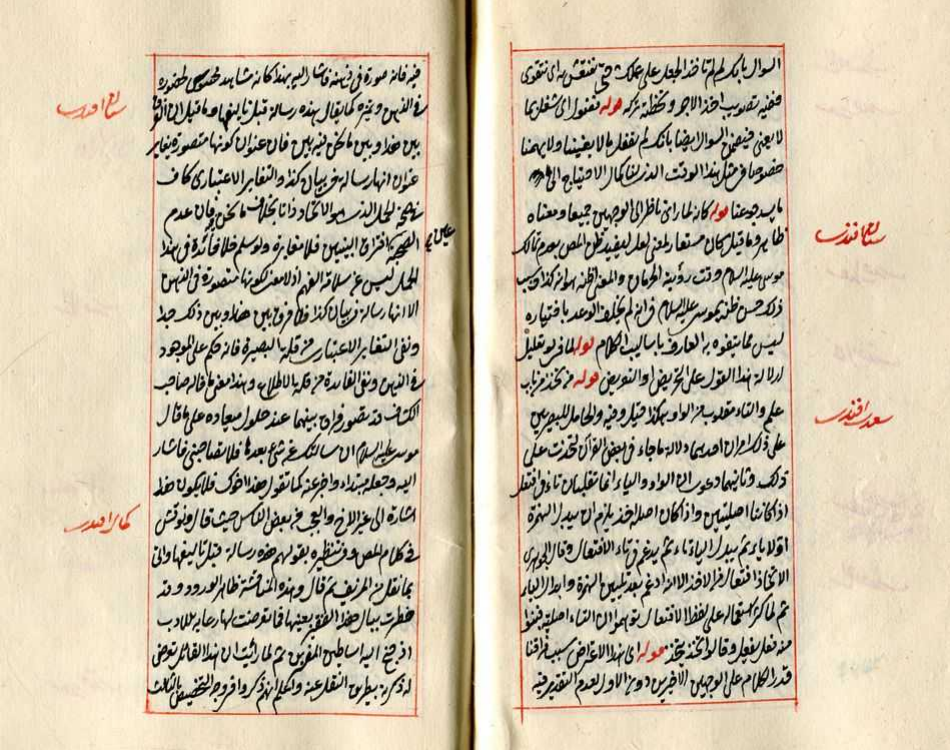 السوال بانك لم لم تاخذ الجعل على عملك حتى تنتعش به اى نتقوى
ففيه تصويب اخذ الاجر وتخطئة تركه قوله ففضول اى شغل بما
لا يعنى فيتضمن السوال ايضا بانك لم تفعل ما لا يعنينا ولا يهمنا
خصوصا فى مثل هذا الوقت الذى لنا كمال الاحتياج الى
ما يسد جوعنا قوله كانه لما راى ناظر الى الوجهين جميعا ومعناه
ظاهر وما قيل كان مستعار لمعنى لعل ليفيد ظن المص بعدم تمالك
موسى عليه السلام وقت رؤية الحرمان والمعنى اظنه هو انه كذا وسبب
ذلك حسن ظنه بموسى عليه السلام فى انه لم يخلف الوعد باختياره
ليس مما يتفوه به العارف باساليب الكلام قوله لما فى لو تعليل
لدلالة هذا القول على التحريض او التعريض قوله من تخذ من باب
علم والتاء مقلوبة من الواو هكذا قيل وفيه والحامل للبصريين
على ذلك امران احدهما دلالة ما جاء فى بعض القران لتخذت على
ذلك وثانيهما دعوى ان الواو والياء انما تقلبان تاء فى افتعل
اذا كانتا اصليتين واذا كان اصله اخذ يلزم ان يبدل الهمزة
اولا ياء ثم يبدل الياء تاء ثم يدغم فى تاء الافتعال وقال الجوهرى
الاتخاذ افتعال من الاخذ الا انه ادغم بعد تليين الهمزة وابدال الياء
ثم لما كثر استعماله على لفظ الافتعال توهموا ان التاء اصلية فبنوا
منه فعل يفعل وقالوا تخذ يتخذ قوله اى هذا الاعتراض سبب فراقنا
قدر الكلام على الوجهين الاخيرين دون الاول لعدم التقدير فيه
سعدى افندى
فيه فانه صورة فى ذهنه فاشار اليه بهذا كانه مشاهد محسوس لحضوره
فى الذهن وغيره كما يقال هذه رسالة قبل تاليفها وما قيل ان الفرق
بين هذا وبين ما نحن فيه بين فان عنوان كونها متصورة يغاير
عنوان انها رسالة فى بيان كذا والتغاير الاعتبارى كاف
فى صحة الحمل الذى هو الاتحاد ذاتا بخلاف ما نحن فيه فان عدم
الصحة افتراق البينين فلا مغايرة ولو سلم فلا فائدة فى هذا
الحمل ليس عن سلامة الفهم اذ لا معنى لكونها متصورة فى الذهن
الا انها رسالة فى بيان كذا فلا فرق بين هذا وبين ذلك جدا
ونفى التغاير الاعتبارى من قلة البصيرة فانه حكم على الموجود
فى الذهن ونفى الفائدة من قلة الاطلاع وهذا معنى ما قاله صاحب
الكشاف قد تصور فراق بينهما عند حلول ميعاده على ما قال
موسى عليه السلام ان سالتك عن شئ بعدها فلا تصاحبنى فاشار
اليه وجعله مبتدا واخبر عنه كما تقول هذا اخوك فلا يكون هذا
اشارة الى غير الاخ والعجب من بعض الناس حيث قال ونوقش
فى كلام المص وفى تنظيره بقولهم هذه رسالة قبل تاليفها واتى
بما نقل من المزيف ثم قال وهذه المناقشة ظاهر الورود وقد
خطرت ببال هذا الفقير بعينها فما تعرضت لها رعاية للادب
اذ جنح اليه اساطين المفسرين ثم لما رايت ان هذا القائل تعرض
له ذكرته بطريق النقل عنه واعلم انهم ذكروا فى وجه التخصيص بالثالث
كمال افندى